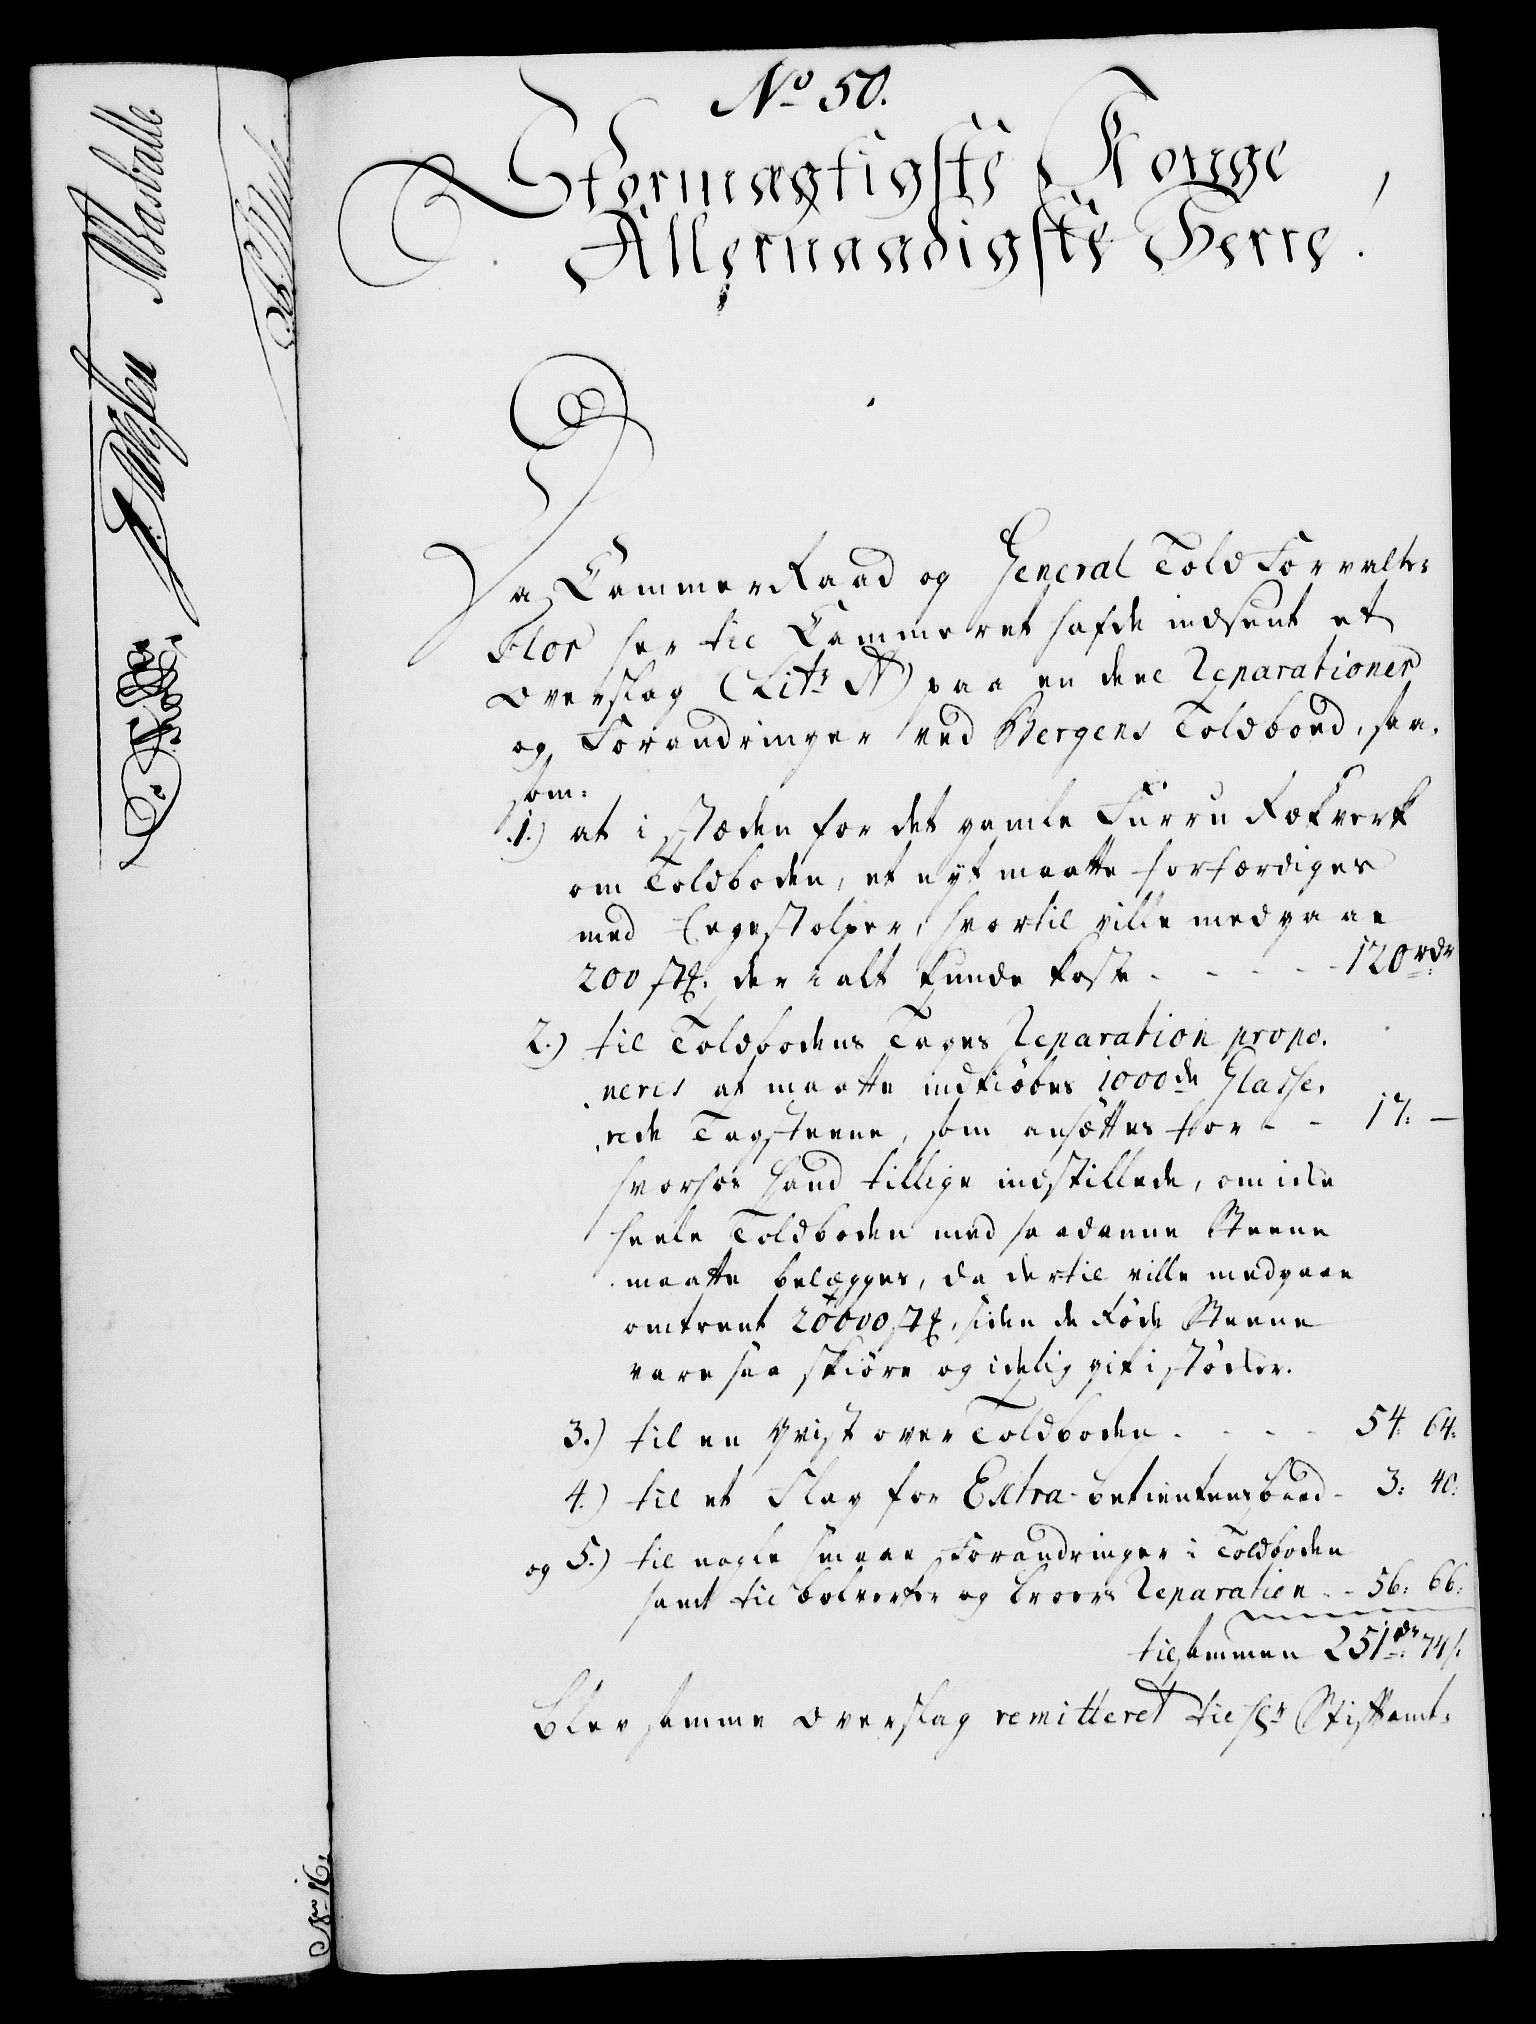 No 50.
Stormægtigste Konge
Allernaadigste Herre!
Da CammerRaad og General Told Forvalter
Flor her til Cammeret hafde indsent et
Overslag (Litr A) paa en deel Reparationer
og Forandringer ved Bergens Toldboed, saa-
som:
1.) at i stæden for det gamle Furru Rækverk
om Toldboden, et nyt maatte forfærdiges
med Eegestolper, hvortil ville medgaae
200 stk. der i alt kunde koste - - - - - 120 rdr
2.) til Toldbodens Tages Reparation propo-
neres at maatte indkiöbes 1000de Glasse-
rede Tagsteene, som ansættes for - - 17: —
hvorhos hand tillige indstillede, om icke
heele Toldboden med saadanne Steene
maatte belægges, da dertil ville medgaae
omtrent 20000 stk, siden de Röde Steene
vare saa skiöre og idelig gik i stöcker.
3.) til en Qvist over Toldboden - - - - 54: 64:
4.) til et Slag for Extra-betientens baad - 3: 40:
og 5.) til nogle smaae Forandringer i Toldboden
samt til bolverker og broers Reparation - - 56: 66:
tilsammen 251 rdr 74 s.
blev samme Overslag remitteret til Hr Stiftamt-
No 16.